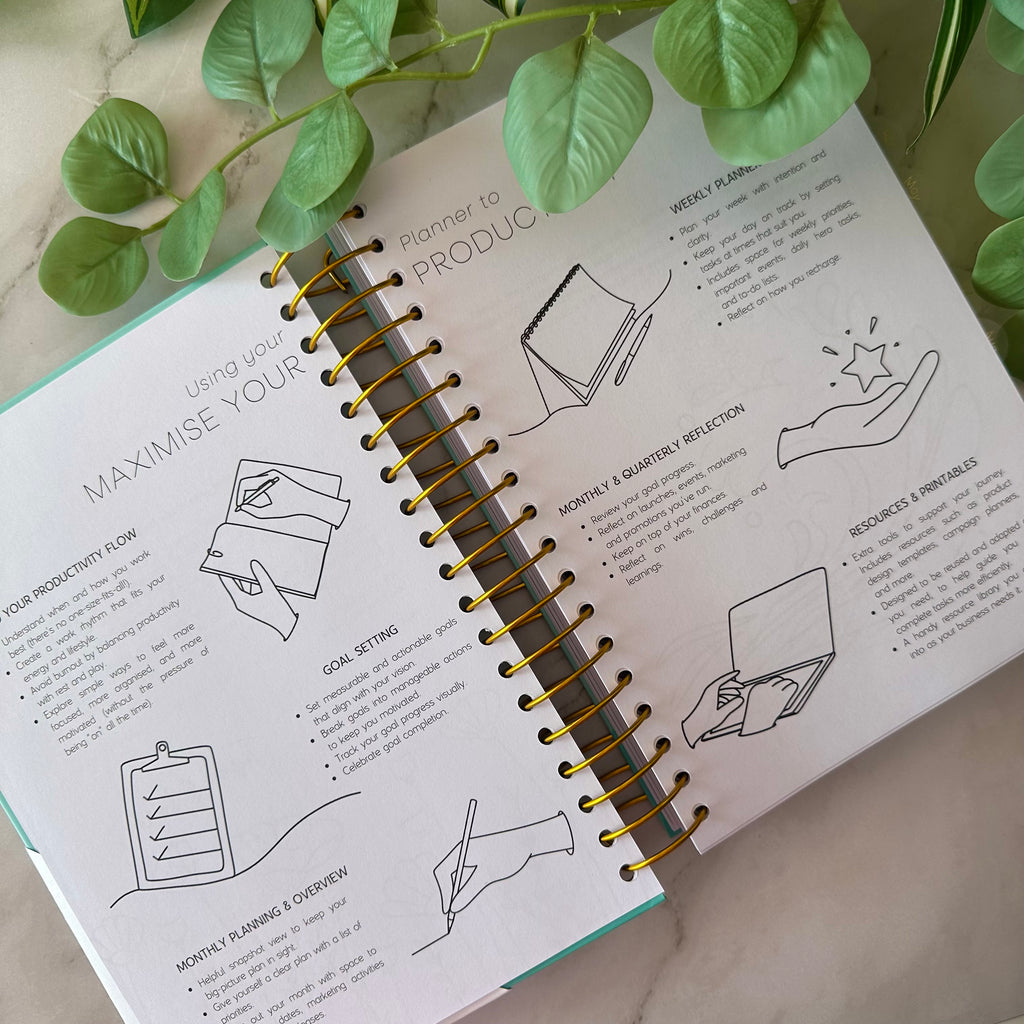 Using your
MAXIMISE YOUR
YOUR PRODUCTIVITY FLOW
Understand when and how you work
best (there's no one-size-fits-all!).
Create a work rhythm that fits your
energy and lifestyle.
• Avoid burnout by balancing productivity
with rest and play.
• Explore simple ways to feel more
focused, more organised, and more
motivated (without the pressure of
being "on" all the time).
GOAL SETTING
• Set measurable and actionable goals
that align with your vision.
• Break goals into manageable actions
to keep you motivated.
• Track your goal progress visually.
• Celebrate goal completion.
MONTHLY PLANNING & OVERVIEW
• Helpful snapshot view to keep your
big-picture plan in sight.
• Give yourself a clear plan with a list of
priorities.
out your month with space to
dates, marketing activities
Planner to
PRODUC
WEEKLY PLANNER
• Plan your week with intention and
clarity.
• Keep your day on track by setting
tasks at times that suit you.
• Includes space for weekly priorities,
important events, daily hero tasks,
and to-do lists.
• Reflect on how you recharge.
MONTHLY & QUARTERLY REFLECTION
• Review your goal progress.
• Reflect on launches, events, marketing
and promotions you've run.
• Keep on top of your finances.
• Reflect on wins, challenges and
learnings.
RESOURCES & PRINTABLES
• Extra tools to support your journey.
Includes resources such as product
design templates, campaign planners,
and more.
• Designed to be reused and adapted
you need, to help guide you
complete tasks more efficiently.
• A handy resource library you
into as your business needs it